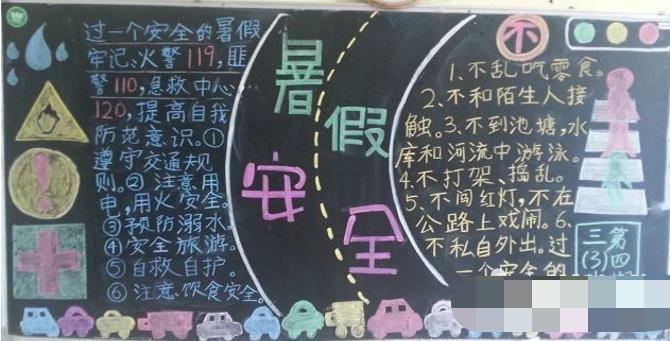 过一个安全的暑假
牢记:火警119,匪
警110,急救中心
120,提高自我
防范意识。①
遵守交通规
则。②注意用
电,用火安全。
③预防溺水。
④安全旅游。
⑤自救自护。
⑥注意饮食安全。
暑假
安全
不
1.不乱吃零食。
2.不和陌生人接
触。3.不到池塘,水
库和河流中游泳。
4.不打架、捣乱。
5.不闯红灯,不在
公路上戏闹。6.
不私自外出。过
一个安全的
第四
三(3)